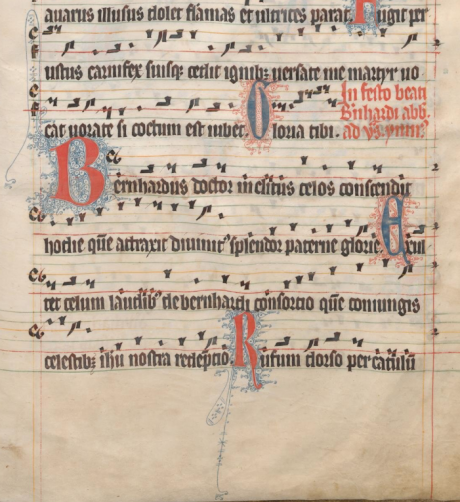 auarus illusus dolet flamas et ultrices parat. Fugit per
ustus carnifex suisq; cedit ignib; uersate me martyr uo
cat uorate si coctum est iubet. Gloria tibi.
In festo beati
B'nhardi abb.
ad v's. ymn'.
Bernhardus doctor inclitus celos conscendit
hodie que attraxit diuinit' splendor paterne glorie. Exul
tet celum laudib' de bernhardi consortio que coniungis
celestib; ihu nostra redeptio. Rufum dorso per catulu